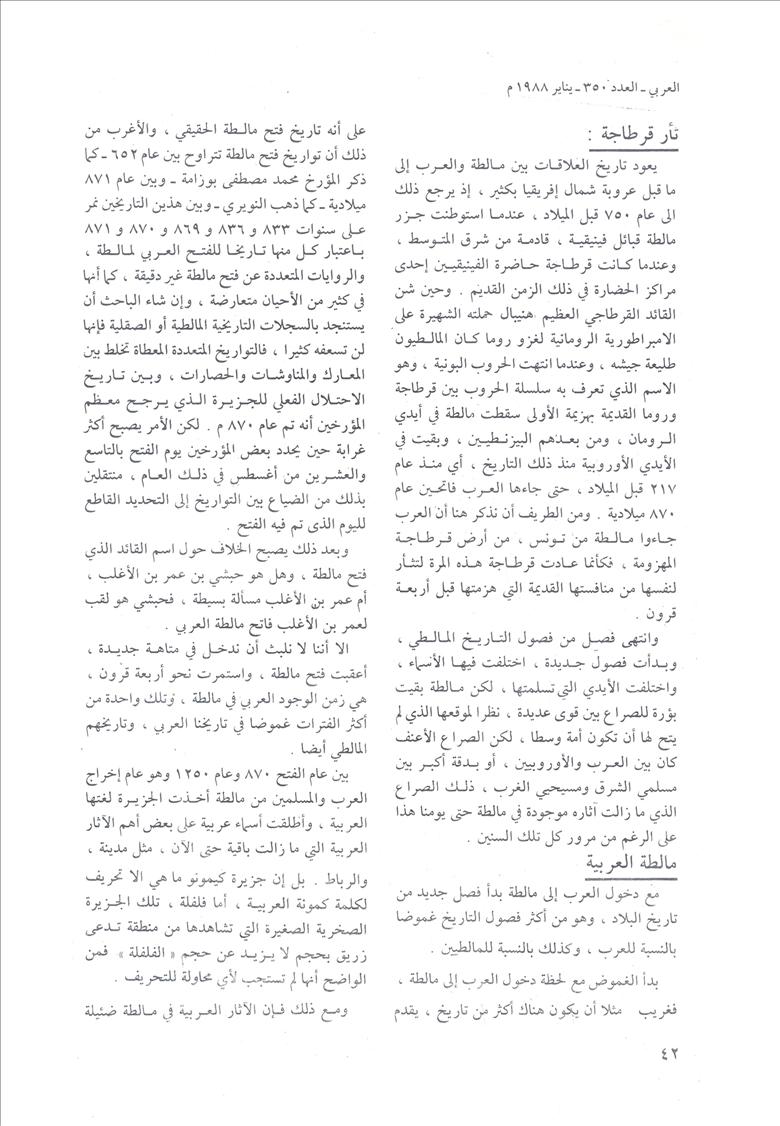 العربي ـ العدد ٣٥٠ ـ يناير ١٩٨٨ م
تأر قرطاجة :
يعود تاريخ العلاقات بين مالطة والعرب إلى
ما قبل عروبة شمال إفريقيا بكثير ، إذ يرجع ذلك
الى عام ٧٥٠ قبل الميلاد ، عندما استوطنت جزر
مالطة قبائل فينيقية ، قادمة من شرق المتوسط ،
وعندما كانت قرطاجة حاضرة الفينيقيين إحدى
مراكز الحضارة في ذلك الزمن القديم . وحين شن
القائد القرطاجي العظيم هنيبال حملته الشهيرة على
الامبراطورية الرومانية لغزو روما كان المالطيون
طليعة جيشه ، وعندما انتهت الحروب البونية ، وهو
الاسم الذي تعرف به سلسلة الحروب بين قرطاجة
وروما القديمة بهزيمة الأولى سقطت مالطة في أيدي
الرومان ، ومن بعدهم البيزنطيين ، وبقيت في
الأيدي الأوروبية منذ ذلك التاريخ ، أي منذ عام
٢١٧ قبل الميلاد ، حتى جاءها العرب فاتحين عام
٨٧٠ ميلادية . ومن الطريف أن نذكر هنا أن العرب
جاءوا مالطة من تونس ، من أرض قرطاجة
المهزومة ، فكأنما عادت قرطاجة هذه المرة لتثأر
لنفسها من منافستها القديمة التي هزمتها قبل أربعة
قرون .
وانتهى فصل من فصول التاريخ المالطي ،
وبدأت فصول جديدة ، اختلفت فيها الأسماء ،
واختلفت الأيدي التي تسلمتها ، لكن مالطة بقيت
بؤرة للصراع بين قوى عديدة ، نظرا لموقعها الذي لم
يتح لها أن تكون أمة وسطا ، لكن الصراع الأعنف
كان بين العرب والأوروبيين ، أو بدقة أكبر بين
مسلمي الشرق ومسيحيي الغرب ، ذلك الصراع
الذي ما زالت آثاره موجودة في مالطة حتى يومنا هذا
على الرغم من مرور كل تلك السنين .
مالطة العربية
مع دخول العرب إلى مالطة بدأ فصل جديد من
تاريخ البلاد ، وهو من أكثر فصول التاريخ غموضا
بالنسبة للعرب ، وكذلك بالنسبة للمالطيين .
بدأ الغموض مع لحظة دخول العرب إلى مالطة ،
فغريب مثلا أن يكون هناك أكثر من تاريخ ، يقدم
على أنه تاريخ فتح مالطة الحقيقي ، والأغرب من
ذلك أن تواريخ فتح مالطة تتراوح بين عام ٦٥٢ ـ كما
ذكر المؤرخ محمد مصطفى بوزامة ـ وبين عام ٨٧١
ميلادية ـ كما ذهب النويري ـ وبين هذين التاريخين نمر
على سنوات ٨٣٣ و ٨٣٦ و ٨٦٩ و ٨٧٠ و ٨٧١
باعتبار كل منها تاريخا للفتح العربي لمالطة ،
والروايات المتعددة عن فتح مالطة غير دقيقة ، كما أنها
في كثير من الأحيان متعارضة ، وإن شاء الباحث أن
يستنجد بالسجلات التاريخية المالطية أو الصقلية فإنها
لن تسعفه كثيرا ، فالتواريخ المتعددة المعطاة تخلط بين
المعارك والمناوشات والحصارات ، وبين تاريخ
الاحتلال الفعلي للجزيرة الذي يرجح معظم
المؤرخين أنه تم عام ٨٧٠ م . لكن الأمر يصبح أكثر
غرابة حين يحدد بعض المؤرخين يوم الفتح بالتاسع
والعشرين من أغسطس في ذلك العام ، منتقلين
بذلك من الضياع بين التواريخ إلى التحديد القاطع
لليوم الذى تم فيه الفتح .
وبعد ذلك يصبح الخلاف حول اسم القائد الذي
فتح مالطة ، وهل هو حبشي بن عمر بن الأغلب ،
أم عمر بن الأغلب مسألة بسيطة ، فحبشي هو لقب
لعمر بن الأغلب فاتح مالطة العربي .
الا أننا لا نلبث أن ندخل في متاهة جديدة ،
أعقبت فتح مالطة ، واستمرت نحو أربعة قرون ،
هي زمن الوجود العربي في مالطة ، وتلك واحدة من
أكثر الفترات غموضا في تاريخنا العربي ، وتاريخهم
المالطي أيضا .
بين عام الفتح ٨٧٠ وعام ١٢٥٠ وهو عام إخراج
العرب والمسلمين من مالطة أخذت الجزيرة لغتها
العربية ، وأطلقت أسماء عربية على بعض أهم الآثار
العربية التي ما زالت باقية حتى الآن ، مثل مدينة ،
والرباط . بل إن جزيرة كيمونو ما هي الا تحريف
لكلمة كمونة العربية ، أما فلفلة ، تلك الجزيرة
الصخرية الصغيرة التي تشاهدها من منطقة تدعى
زريق بحجم لا يزيد عن حجم « الفلفلة » فمن
الواضح أنها لم تستجب لأي محاولة للتحريف .
ومع ذلك فإن الآثار العربية في مالطة ضئيلة
٤٢